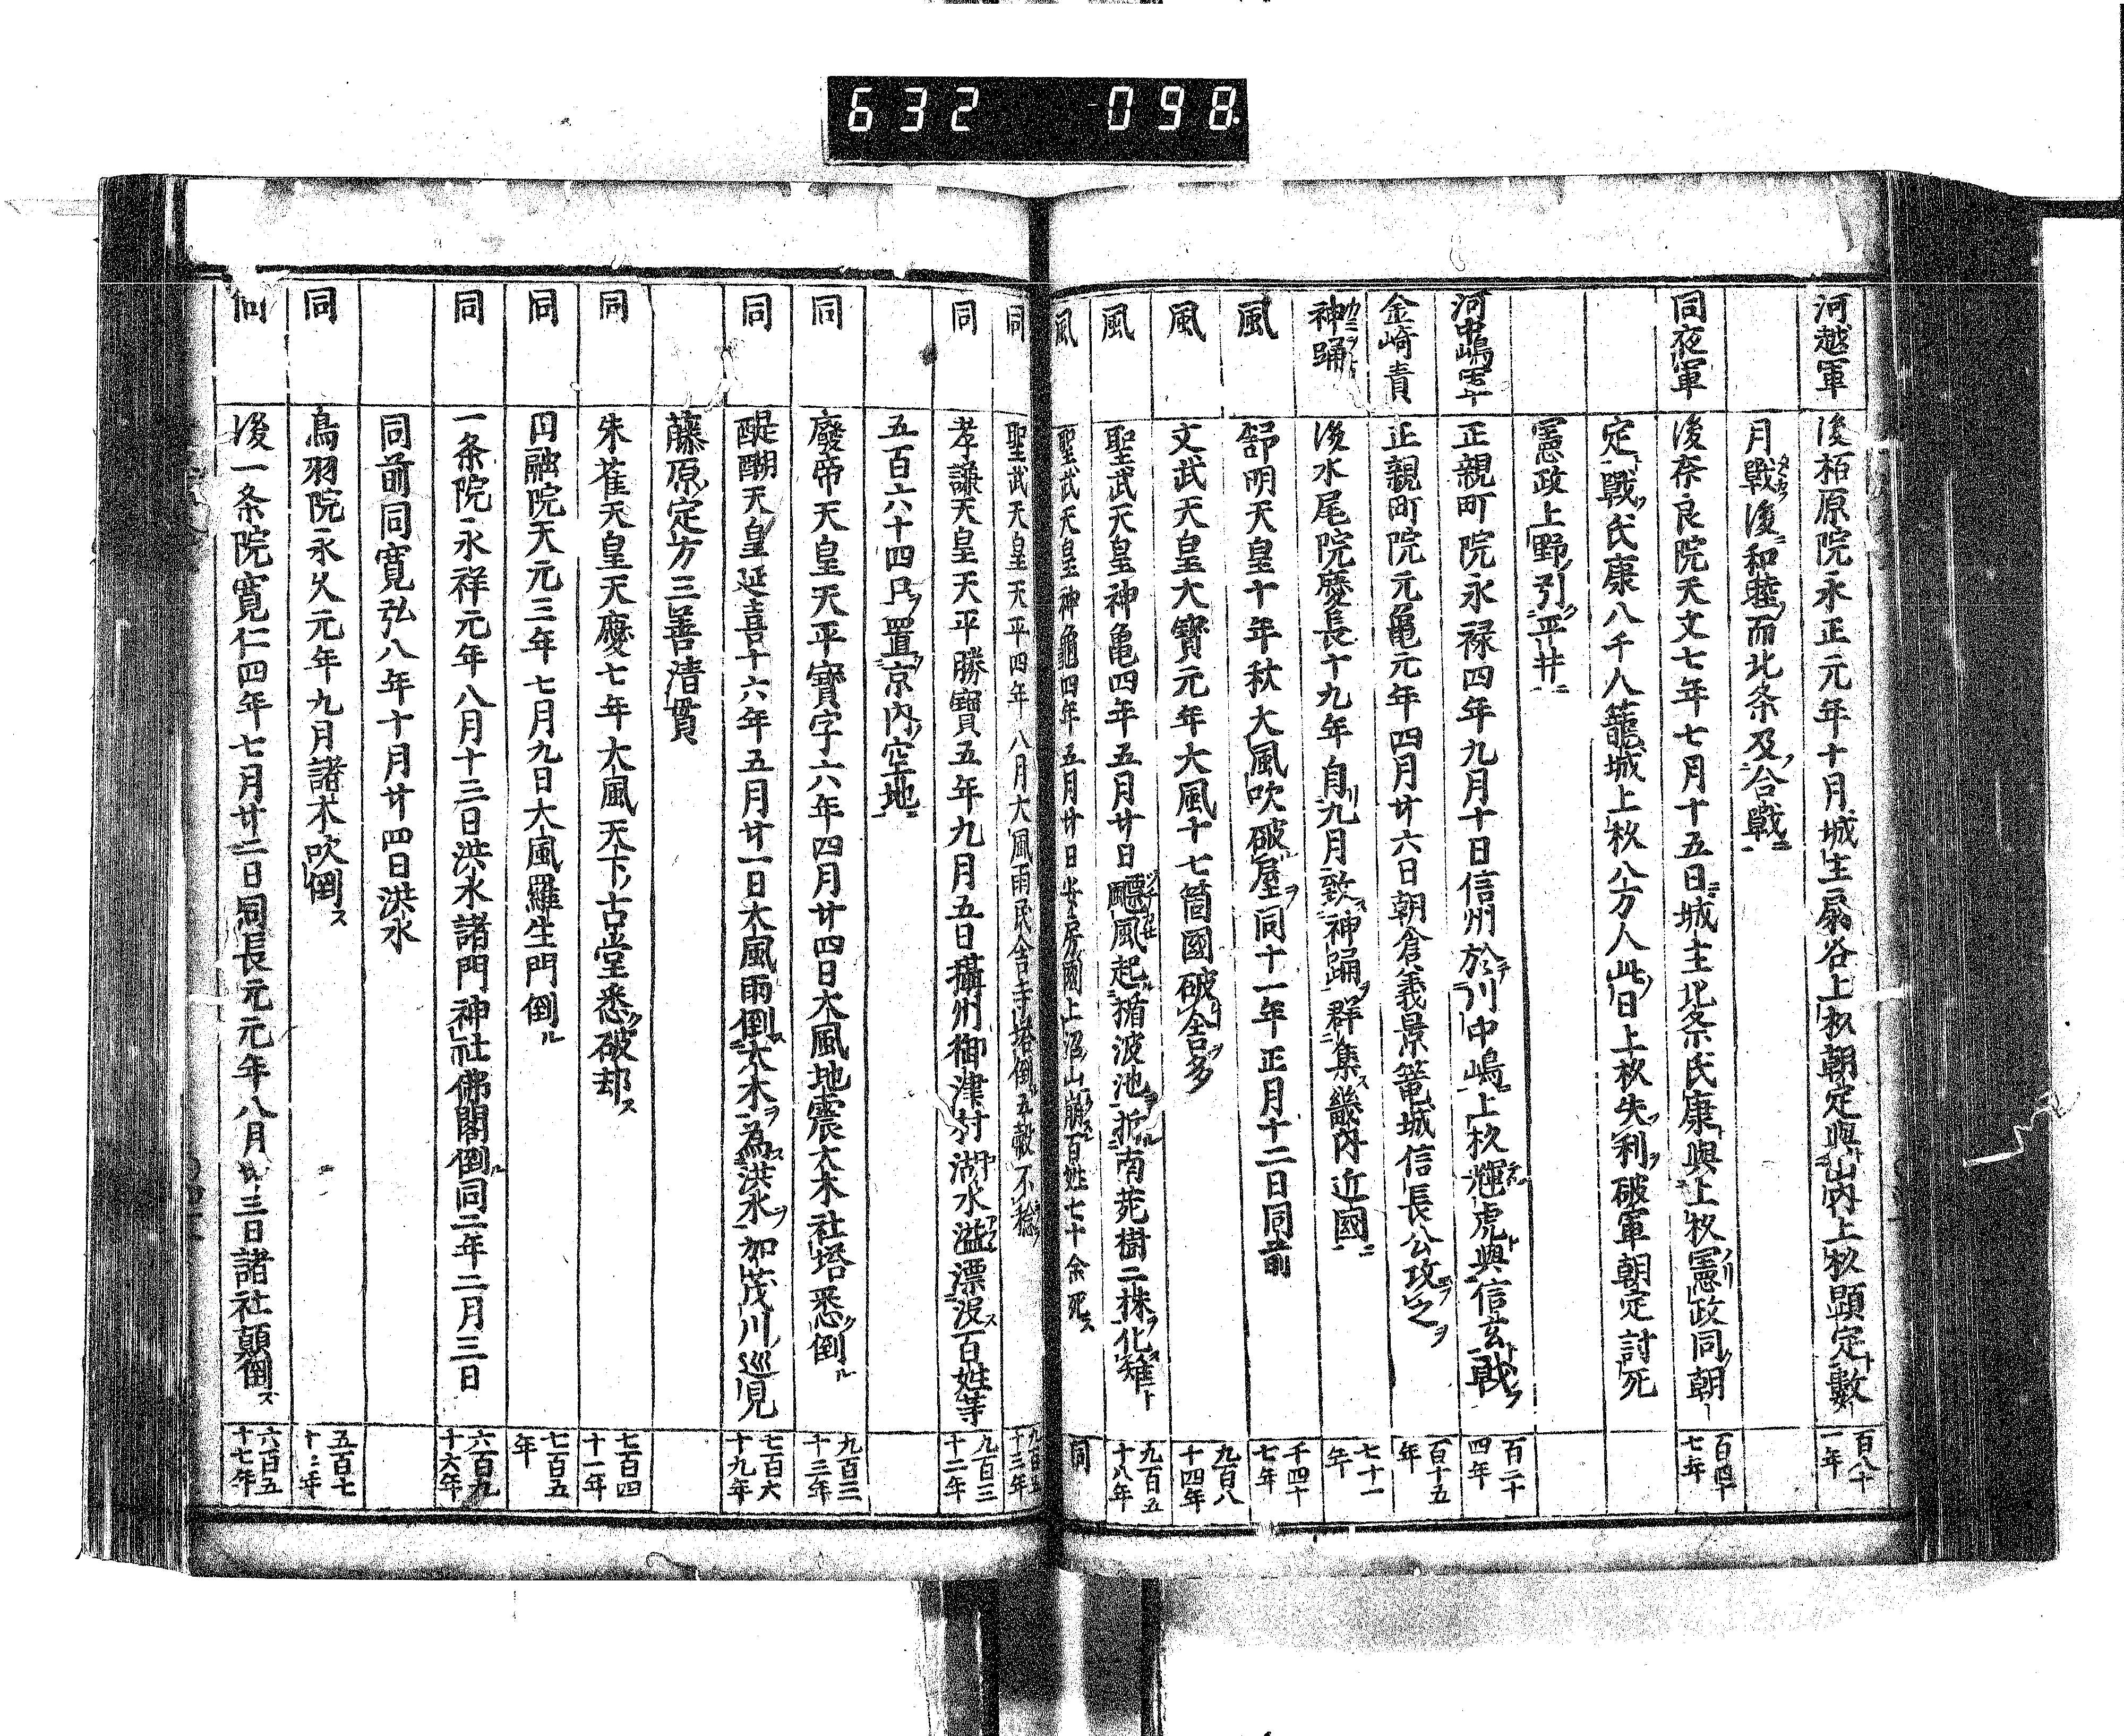 632 098
河越軍 後柏原院永正元年十月城主扇谷上杦朝定與山内上杦顕定數 百八十一年
月戰後和睦而北条及合戰
同夜軍 後奈良院天文七年七月十五日城主北条氏康與上杦憲政同朝 百四十七年
定戰氏康八千人籠城上杦八万人此日上杦失利破軍朝定討死
憲政上野引平井
河中嶋 正親町院永禄四年九月十日信州於川中嶋上杦輝虎與信玄戰 百二十四年
金崎責 正親町院元亀元年四月廿六日朝倉義景篭城信長公攻之 百十五年
神踊 後水尾院慶長十九年自九月致神踊群集畿内近國 七十一年
風 舒明天皇十年秋大風吹破屋同十一年正月十二日同前 千四十七年
風 文武天皇大寶元年大風十七箇國破舎多 九百八十四年
風 聖武天皇神亀四年五月廿日飄風起楯波池折南苑樹二株化雉 九百五十八年
風 聖武天皇神龜四年五月廿日安房國上沼山崩百姓七十余死 同
同 聖武天皇天平四年八月大風雨民舎寺塔倒五穀不稔 九百五十三年
同 孝謙天皇天平勝寶五年九月五日攝州御津村湖水溢漂没百姓等 九百三十二年
五百六十四只置京内空地
同 廢帝天皇天平寶字六年四月廿四日大風地震大木社塔悉倒 九百二十三年
同 醍醐天皇延喜十六年五月廿一日大風雨倒大木為洪水加茂川巡見 七百六十九年
藤原定方三善清貫
同 朱雀天皇天慶七年大風天下古堂悉破却 七百四十一年
同 円融院天元三年七月九日大風羅生門倒 七百五年
同 一条院永祥元年八月十三日洪水諸門神社佛閣倒同二年二月三日 六百九十六年
同前同寛弘八年十月廿四日洪水
同 鳥羽院永久元年九月諸木吹倒 五百七十二年
同 後一条院寛仁四年七月廿二日同長元元年八月廿三日諸社顛倒 六百五十七年